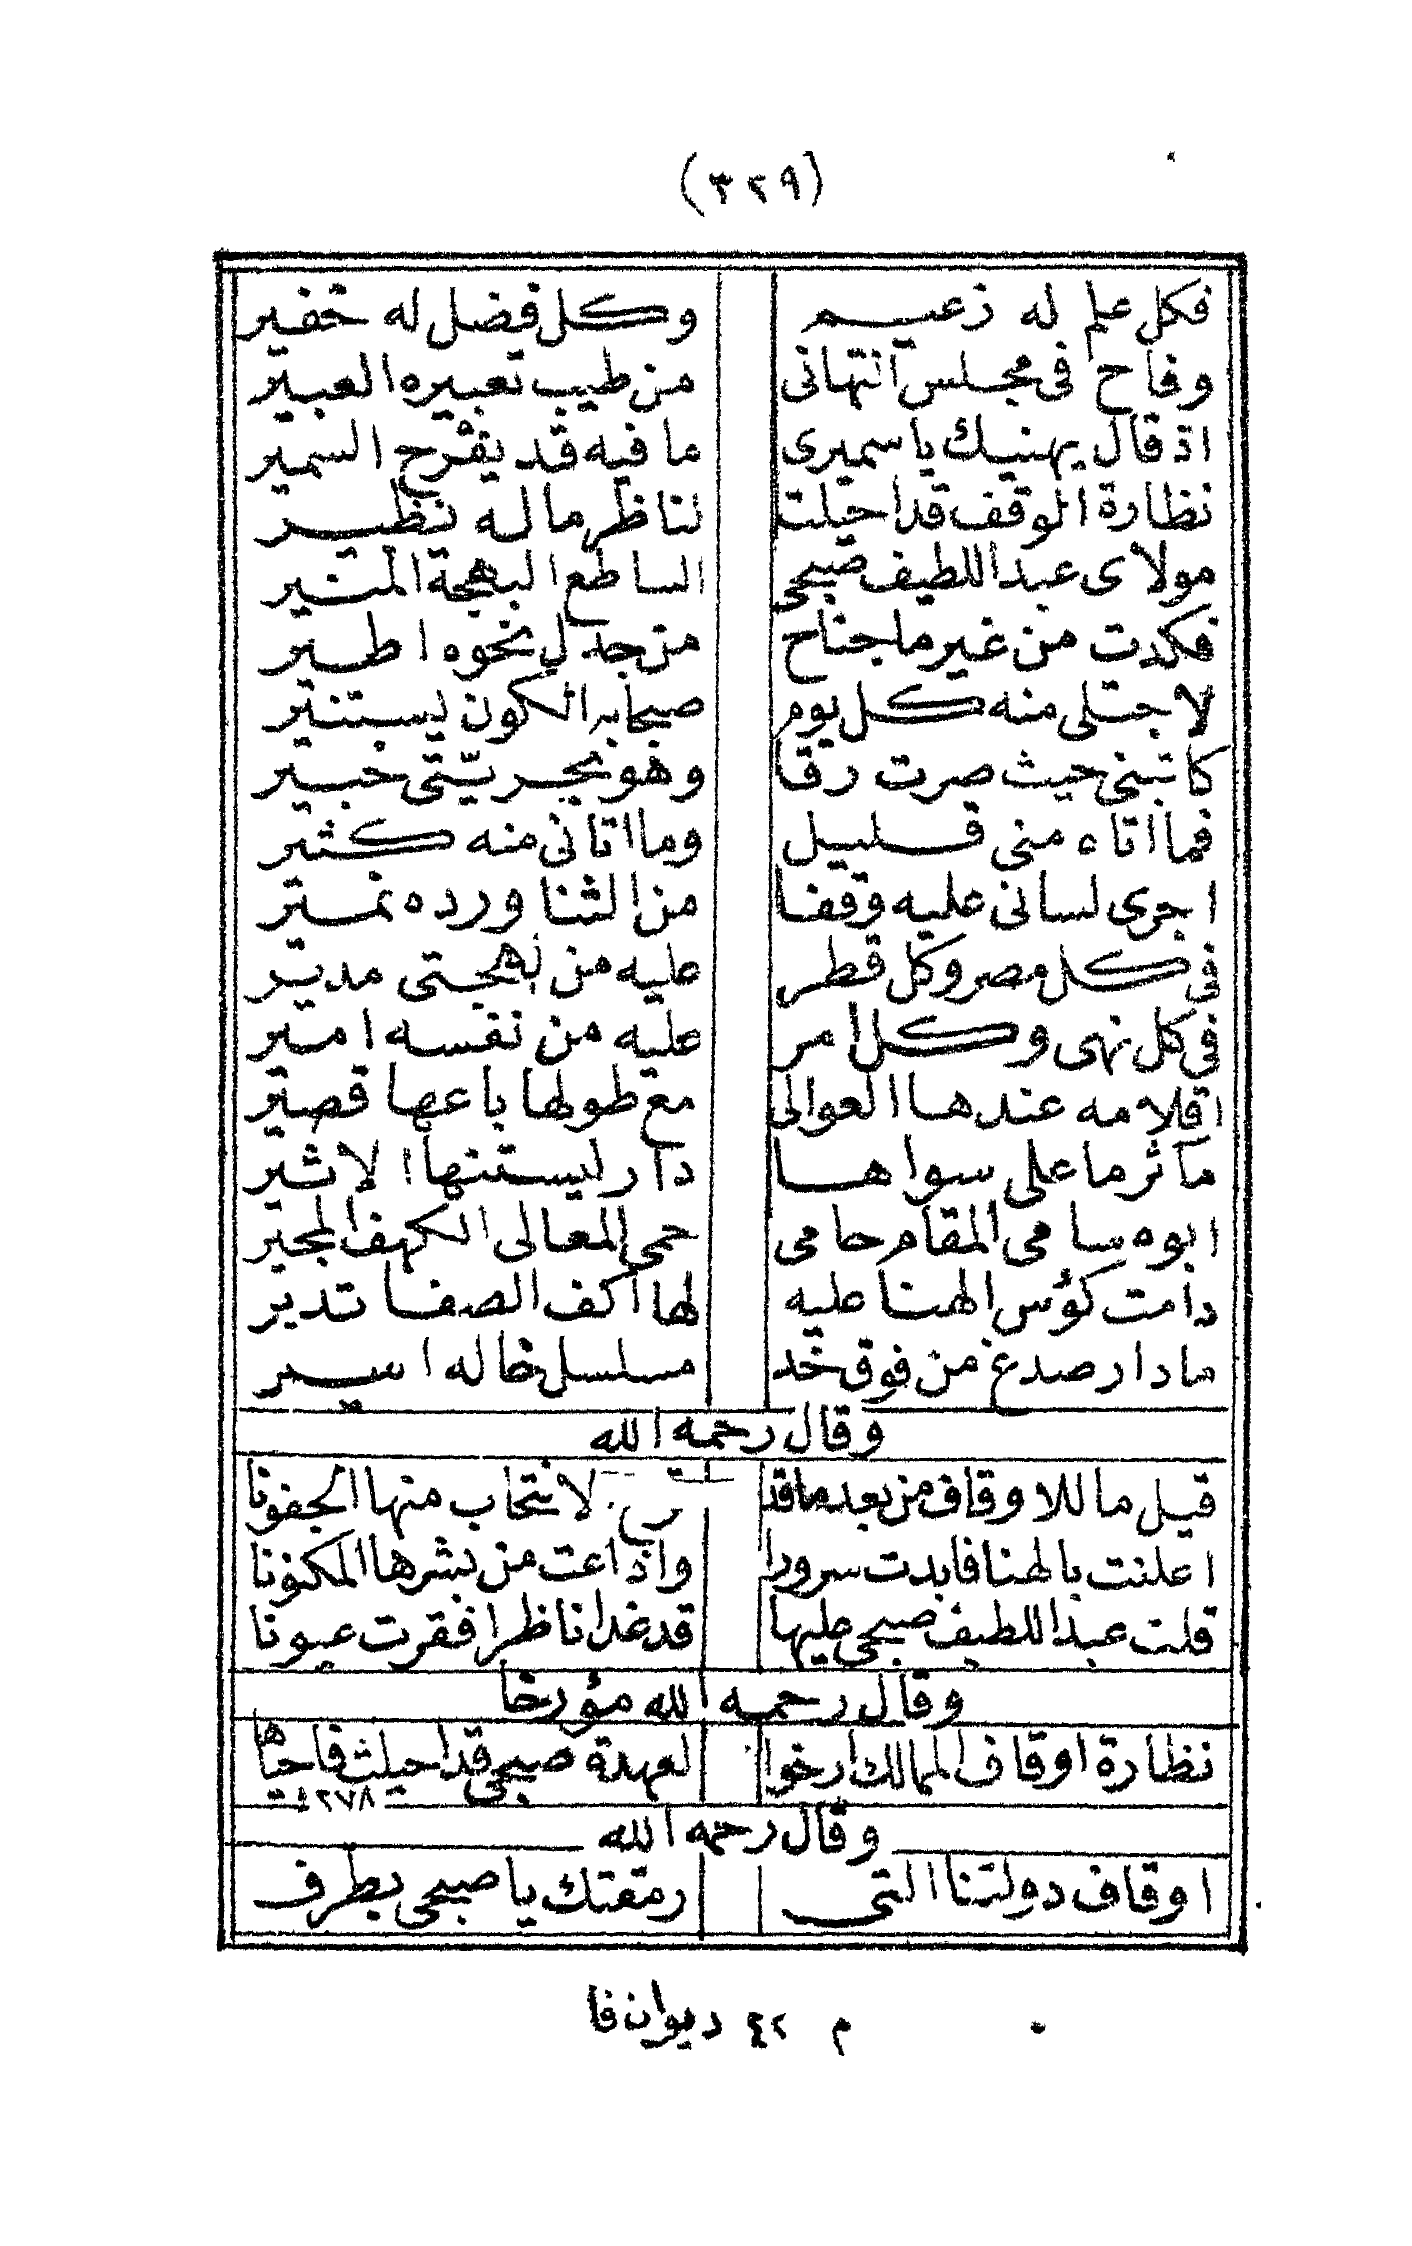 (٣٢٩)
فكل علم له زعيم وكل فضل له خفير
وفاح في مجلس التهاني من طيب تعبيره العبير
اذ قال يهنيك ياسميرى ما فيه قد يفرح السمير
نظارة الوقف قد احيلت لناظر ماله نظير
مولاى عبد اللطيف صبحى الساطع البهجة المنير
فكدت من غير ما جناح من جدل نحوه اطير
لاجتلى منه كل يوم صبحا به الكون يستنير
كاتبنى حيث صرت رقا وهو بحريتى خبير
فما اتاه منى قليل وما اتانى منه كثير
اجرى لسانى عليه وقفا من الثنا ورده نمير
فى كل مصر وكل قطر عليه من لهجتى مدير
فى كل نهى وكل امر عليه من نفسه امير
اقلامه عندها العوالى مع طولها باعها قصير
مآثر ما على سواها دار ليستنها الاثير
ابوه سامى المقام حامى حمى المعالى الكهف المجير
دامت كؤس الهنا عليه لها اكف الصفا تدير
ما دار صدغ من فوق خد مسلسل خاله اسير
وقال رحمه الله
قيل ما للاوقاف من بعد ما قد لانتحاب منها الجفونا
اعلنت بالهنا فابدت سرورا واذاعت من بشرها المكنونا
قلت عبد اللطيف صبحى عليها قد غدا ناظرا فقرت عيونا
وقال رحمه الله مؤرخا
نظارة اوقاف الممالك ارخوا لعهدة صبحى قد احيلت فاحياها
١٢٧٨
وقال رحمه الله
اوقاف دولتنا التى رمقتك يا صبحى بطرف
م ٤٢ ديوان فا